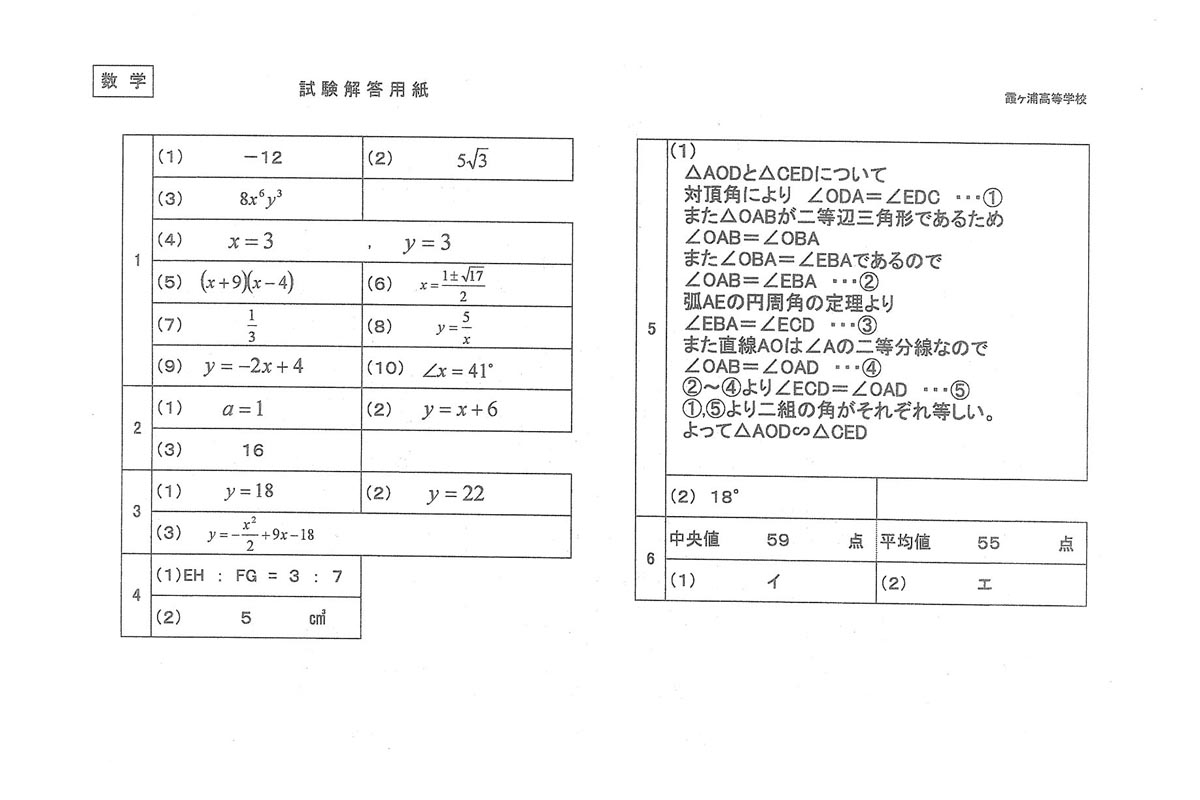 数 学
試 験 解 答 用 紙
霞ヶ浦高等学校
1
(1) －12
(2) 5√3
(3) 8x⁶y³
(4) x = 3 , y = 3
(5) (x+9)(x−4)
(6) x = (1±√17)/2
(7) 1/3
(8) y = 5/x
(9) y = −2x + 4
(10) ∠x = 41°
2
(1) a = 1
(2) y = x + 6
(3) 16
3
(1) y = 18
(2) y = 22
(3) y = −x²/2 + 9x − 18
4
(1)EH : FG = 3 : 7
(2) 5 ㎠
5
(1)
△AODと△CEDについて
対頂角により ∠ODA＝∠EDC …①
また△OABが二等辺三角形であるため
∠OAB＝∠OBA
また∠OBA＝∠EBAであるので
∠OAB＝∠EBA …②
弧AEの円周角の定理より
∠EBA＝∠ECD …③
また直線AOは∠Aの二等分線なので
∠OAB＝∠OAD …④
②～④より∠ECD＝∠OAD …⑤
①,⑤より二組の角がそれぞれ等しい。
よって△AOD∽△CED
(2) 18°
6
中央値 59 点
平均値 55 点
(1) イ
(2) エ